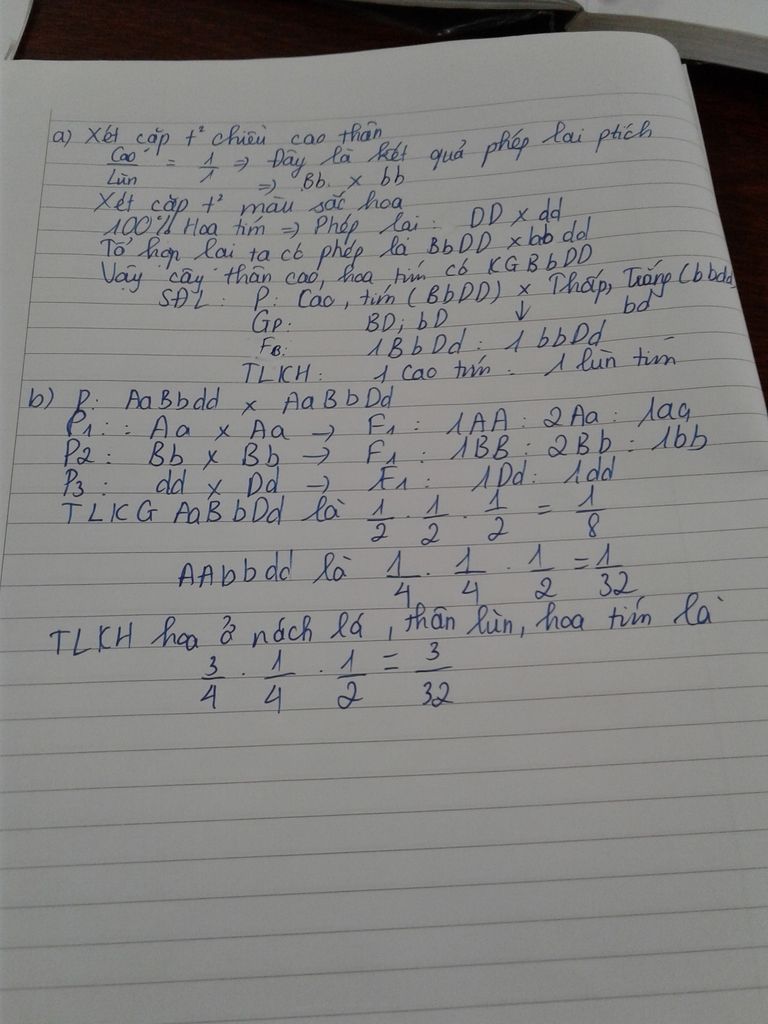 a) Xét cặp t² chiều cao thân
Cao/Lùn = 1/1 => Đây là kết quả phép lai ptích
=> Bb x bb
Xét cặp t² màu sắc hoa
100% Hoa tím => Phép lai: DD x dd
Tổ hợp lai ta có phép là BbDD x bb dd
Vậy cây thân cao, hoa tím có KG BbDD
SĐL: P: Cao, tím (BbDD) x Thấp, Trắng (bbdd)
Gp: BD; bD ↓ bd
FB: 1BbDd : 1 bbDd
TLKH: 1 cao tím : 1 lùn tím
b) P: AaBbdd x AaBbDd
P1: : Aa x Aa → F1 : 1AA : 2Aa : 1aa
P2 : Bb x Bb → F1 : 1BB : 2Bb : 1bb
P3 : dd x Dd → F1 : 1Dd : 1dd
TLKG AaBbDd là 1/2 . 1/2 . 1/2 = 1/8
AAbbdd là 1/4 . 1/4 . 1/2 = 1/32
TLKH hoa ở nách lá, thân lùn, hoa tím là
3/4 . 1/4 . 1/2 = 3/32